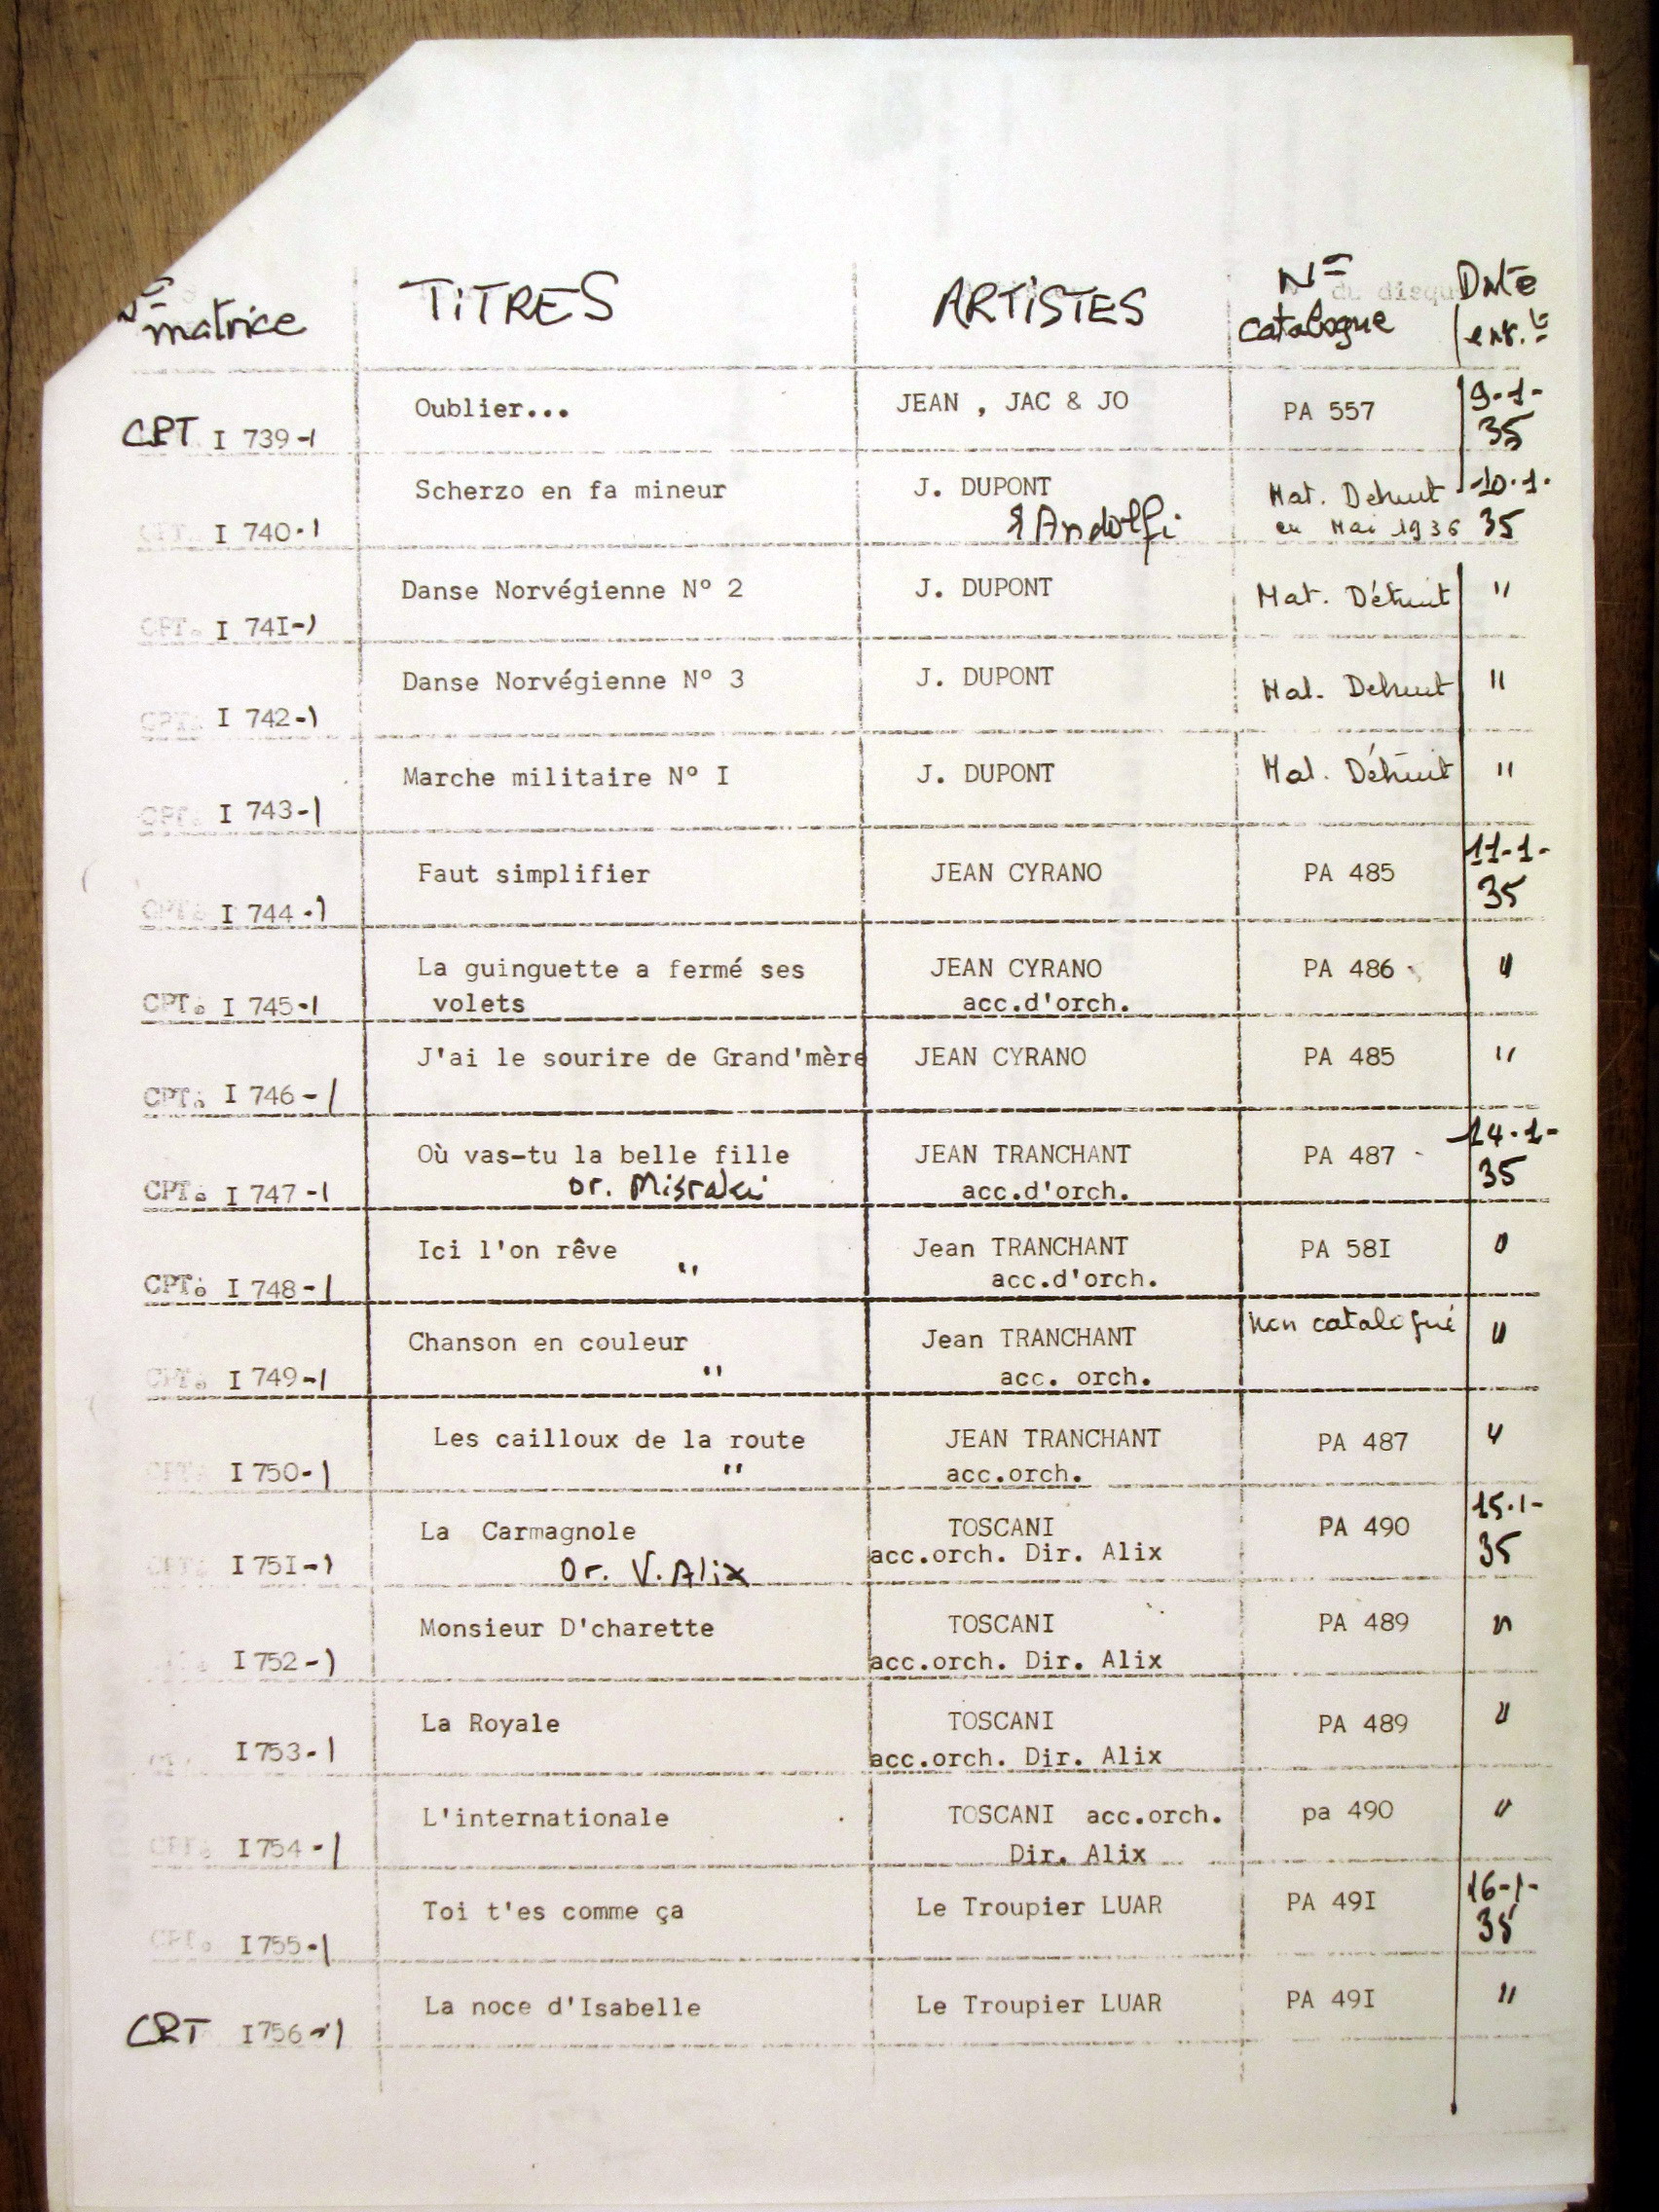 N° matrice TITRES ARTISTES N° catalogue Date enr.t
Oublier... JEAN , JAC & JO PA 557 9-1-
CPT I 739-1 35
Scherzo en fa mineur J. DUPONT Mat. Détruit 10.1.
I 740-1 & Andolfi en Mai 1936 35
Danse Norvégienne N° 2 J. DUPONT Mat. Détruit "
CPT. I 74I-1
Danse Norvégienne N° 3 J. DUPONT Mat. Détruit "
CPT. I 742-1
Marche militaire N° I J. DUPONT Mat. Détruit "
CPT. I 743-1
Faut simplifier JEAN CYRANO PA 485 11-1-
CPT. I 744-1 35
La guinguette a fermé ses JEAN CYRANO PA 486 "
CPT. I 745-1 volets acc.d'orch.
J'ai le sourire de Grand'mère JEAN CYRANO PA 485 "
CPT. I 746-1
Où vas-tu la belle fille JEAN TRANCHANT PA 487 14.1-
CPT. I 747-1 or. Misraki acc.d'orch. 35
Ici l'on rêve Jean TRANCHANT PA 58I "
CPT. I 748-1 " acc.d'orch.
Chanson en couleur Jean TRANCHANT non catalogué "
CPT. I 749-1 " acc. orch.
Les cailloux de la route JEAN TRANCHANT PA 487 "
CPT. I 750-1 " acc.orch.
La Carmagnole TOSCANI PA 490 15.1-
CPT. I 75I-1 Or. V. Alix acc.orch. Dir. Alix 35
Monsieur D'charette TOSCANI PA 489 "
I 752-1 acc.orch. Dir. Alix
La Royale TOSCANI PA 489 "
I 753-1 acc.orch. Dir. Alix
L'internationale TOSCANI acc.orch. pa 490 "
CPT. I 754-1 Dir. Alix
Toi t'es comme ça Le Troupier LUAR PA 49I 16-1-
CPT. I 755-1 35
La noce d'Isabelle Le Troupier LUAR PA 49I "
CPT I 756-1